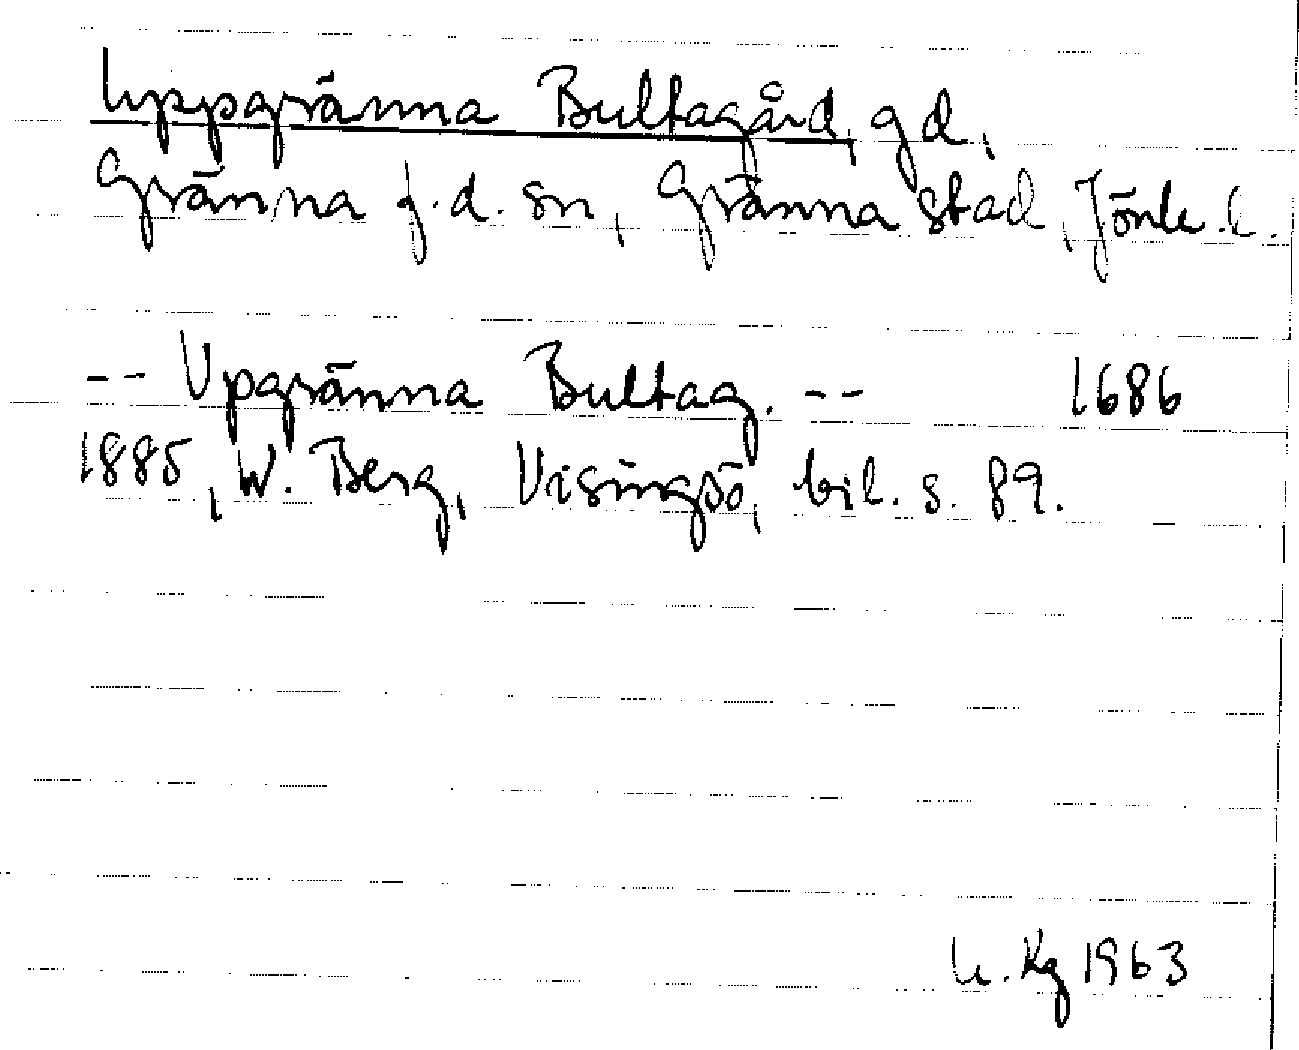 Uppgränna Bultagård, gd,
Gränna f.d. sn, Gränna stad, Jönk. l.
-- Upgränna Bultag. -- 1686
1885, W. Berg, Visingsö, bil. s. 89.
U. Kg 1963